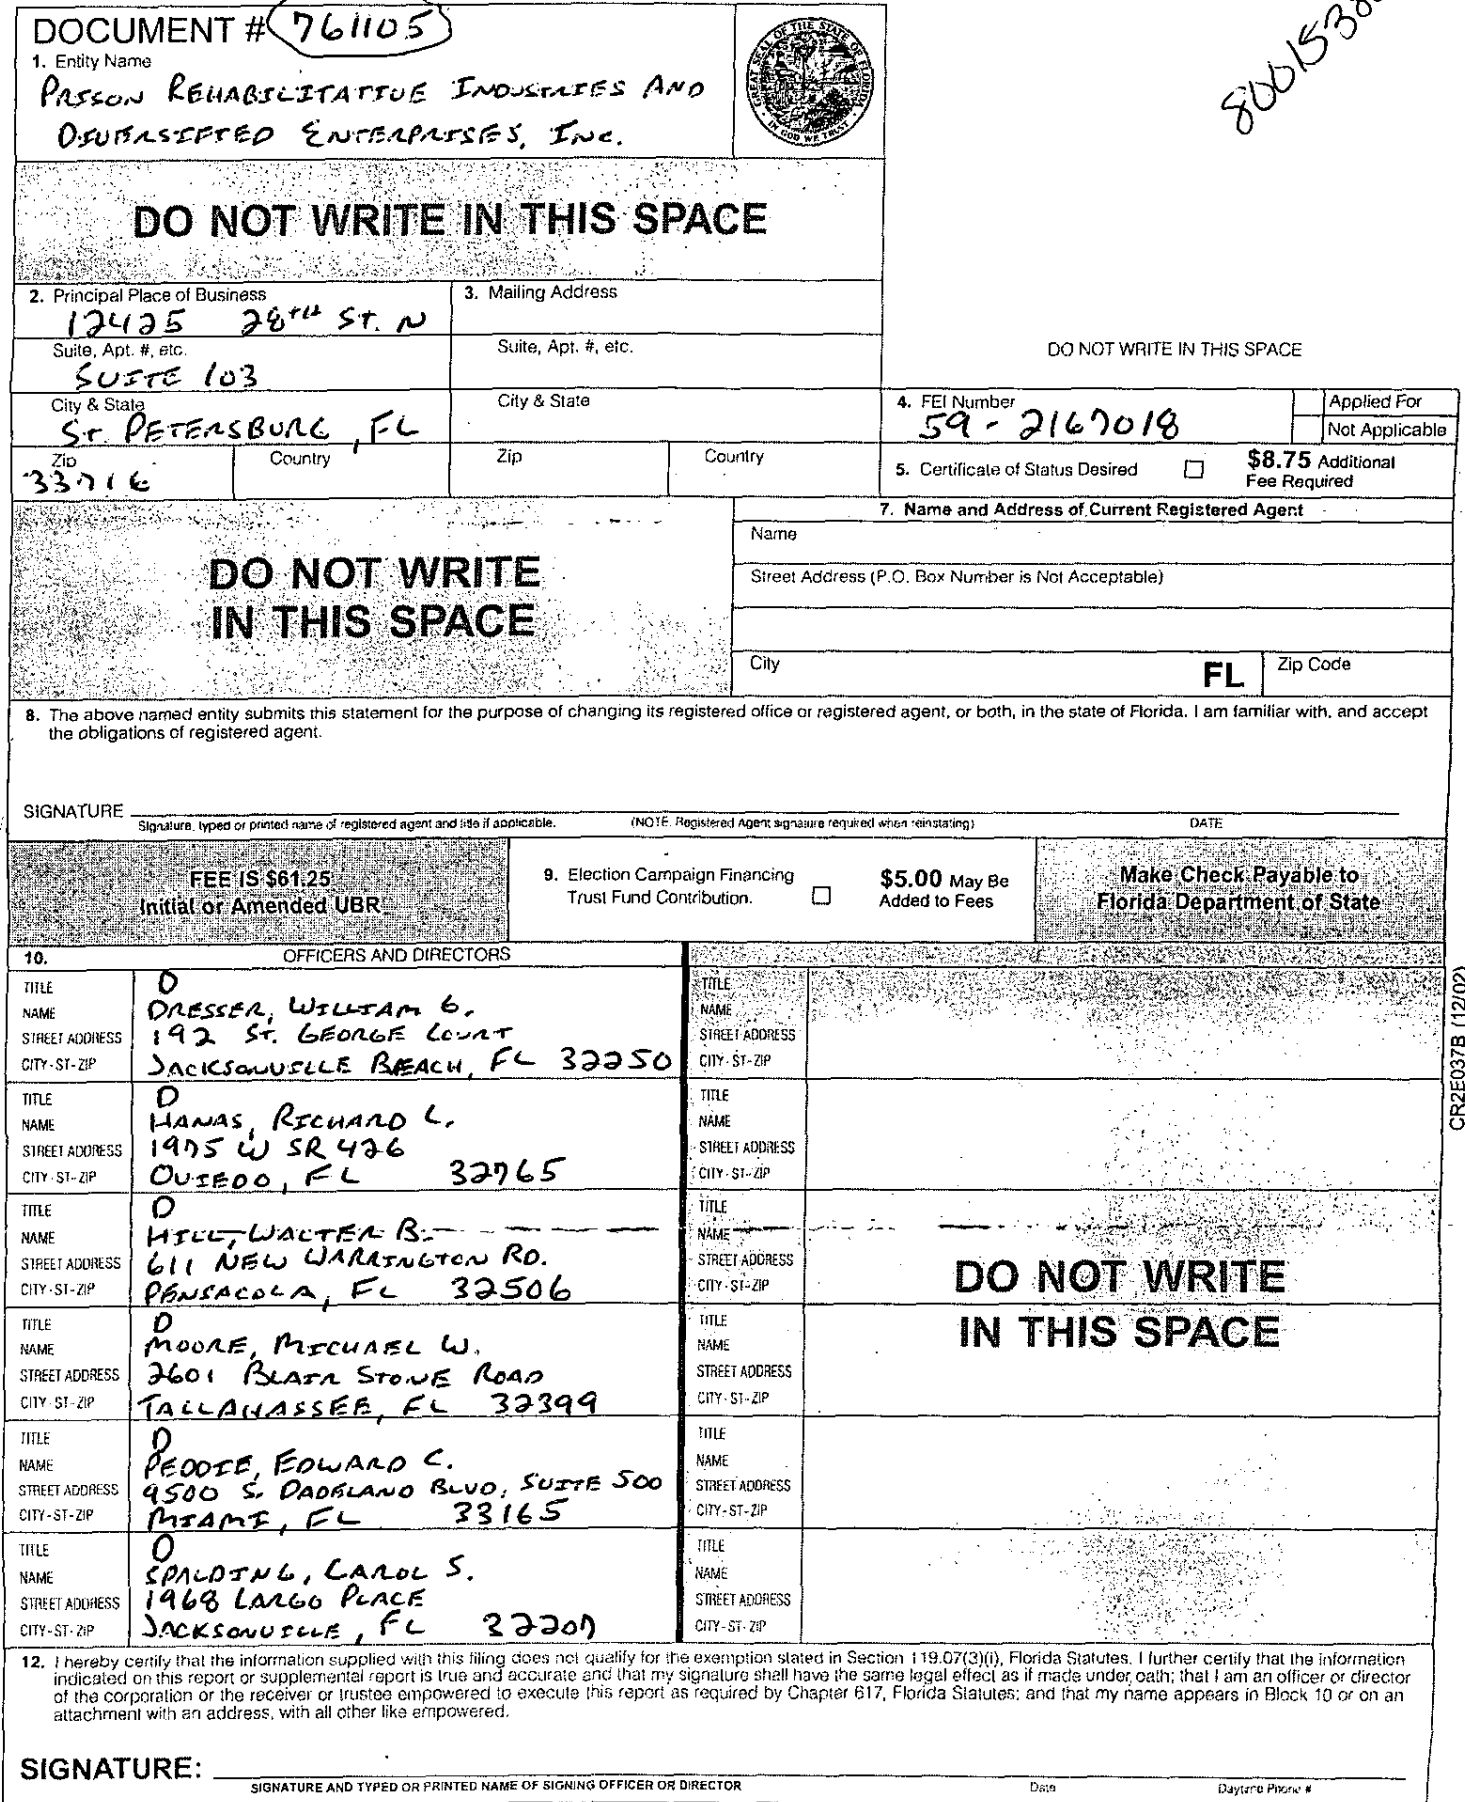 DOCUMENT # 761105
1. Entity Name
PRISON REHABILITATIVE INDUSTRIES AND
DIVERSIFIED ENTERPRISES, INC.
GREAT SEAL OF THE STATE OF FLORIDA
IN GOD WE TRUST
DO NOT WRITE IN THIS SPACE
2. Principal Place of Business
12425 28TH ST. N
3. Mailing Address
Suite, Apt. #, etc.
SUITE 103
Suite, Apt. #, etc.
DO NOT WRITE IN THIS SPACE
City & State
ST. PETERSBURG, FL
City & State
4. FEI Number
59-2167018
Applied For
Not Applicable
Zip
33716
Country
Zip
Country
5. Certificate of Status Desired
$8.75 Additional
Fee Required
7. Name and Address of Current Registered Agent
Name
Street Address (P.O. Box Number is Not Acceptable)
City
FL
Zip Code
DO NOT WRITE
IN THIS SPACE
8. The above named entity submits this statement for the purpose of changing its registered office or registered agent, or both, in the state of Florida. I am familiar with, and accept
the obligations of registered agent.
SIGNATURE
Signature, typed or printed name of registered agent and title if applicable.
(NOTE: Registered Agent signature required when reinstating)
DATE
FEE IS $61.25
Initial or Amended UBR
9. Election Campaign Financing
Trust Fund Contribution.
$5.00 May Be
Added to Fees
Make Check Payable to
Florida Department of State
10. OFFICERS AND DIRECTORS
TITLE D
NAME DRESSER, WILLIAM G.
STREET ADDRESS 192 ST. GEORGE COURT
CITY-ST-ZIP JACKSONVILLE BEACH, FL 32250
TITLE D
NAME HANAS, RICHARD L.
STREET ADDRESS 1975 W SR 426
CITY-ST-ZIP OVIEDO, FL 32765
TITLE D
NAME HILL, WALTER B.
STREET ADDRESS 611 NEW WARRINGTON RD.
CITY-ST-ZIP PENSACOLA, FL 32506
TITLE D
NAME MOORE, MICHAEL W.
STREET ADDRESS 2601 BLAIR STONE ROAD
CITY-ST-ZIP TALLAHASSEE, FL 32399
TITLE D
NAME PEDDIE, EDWARD C.
STREET ADDRESS 9500 S. DADELAND BLVD, SUITE 500
CITY-ST-ZIP MIAMI, FL 33165
TITLE D
NAME SPALDING, CAROL S.
STREET ADDRESS 1968 LARGO PLACE
CITY-ST-ZIP JACKSONVILLE, FL 32207
TITLE
NAME
STREET ADDRESS
CITY-ST-ZIP
TITLE
NAME
STREET ADDRESS
CITY-ST-ZIP
TITLE
NAME
STREET ADDRESS
CITY-ST-ZIP
TITLE
NAME
STREET ADDRESS
CITY-ST-ZIP
TITLE
NAME
STREET ADDRESS
CITY-ST-ZIP
TITLE
NAME
STREET ADDRESS
CITY-ST-ZIP
DO NOT WRITE
IN THIS SPACE
CR2E037B (12/02)
12. I hereby certify that the information supplied with this filing does not qualify for the exemption stated in Section 119.07(3)(i), Florida Statutes. I further certify that the information
indicated on this report or supplemental report is true and accurate and that my signature shall have the same legal effect as if made under oath; that I am an officer or director
of the corporation or the receiver or trustee empowered to execute this report as required by Chapter 617, Florida Statutes; and that my name appears in Block 10 or on an
attachment with an address, with all other like empowered.
SIGNATURE:
SIGNATURE AND TYPED OR PRINTED NAME OF SIGNING OFFICER OR DIRECTOR
Date
Daytime Phone #